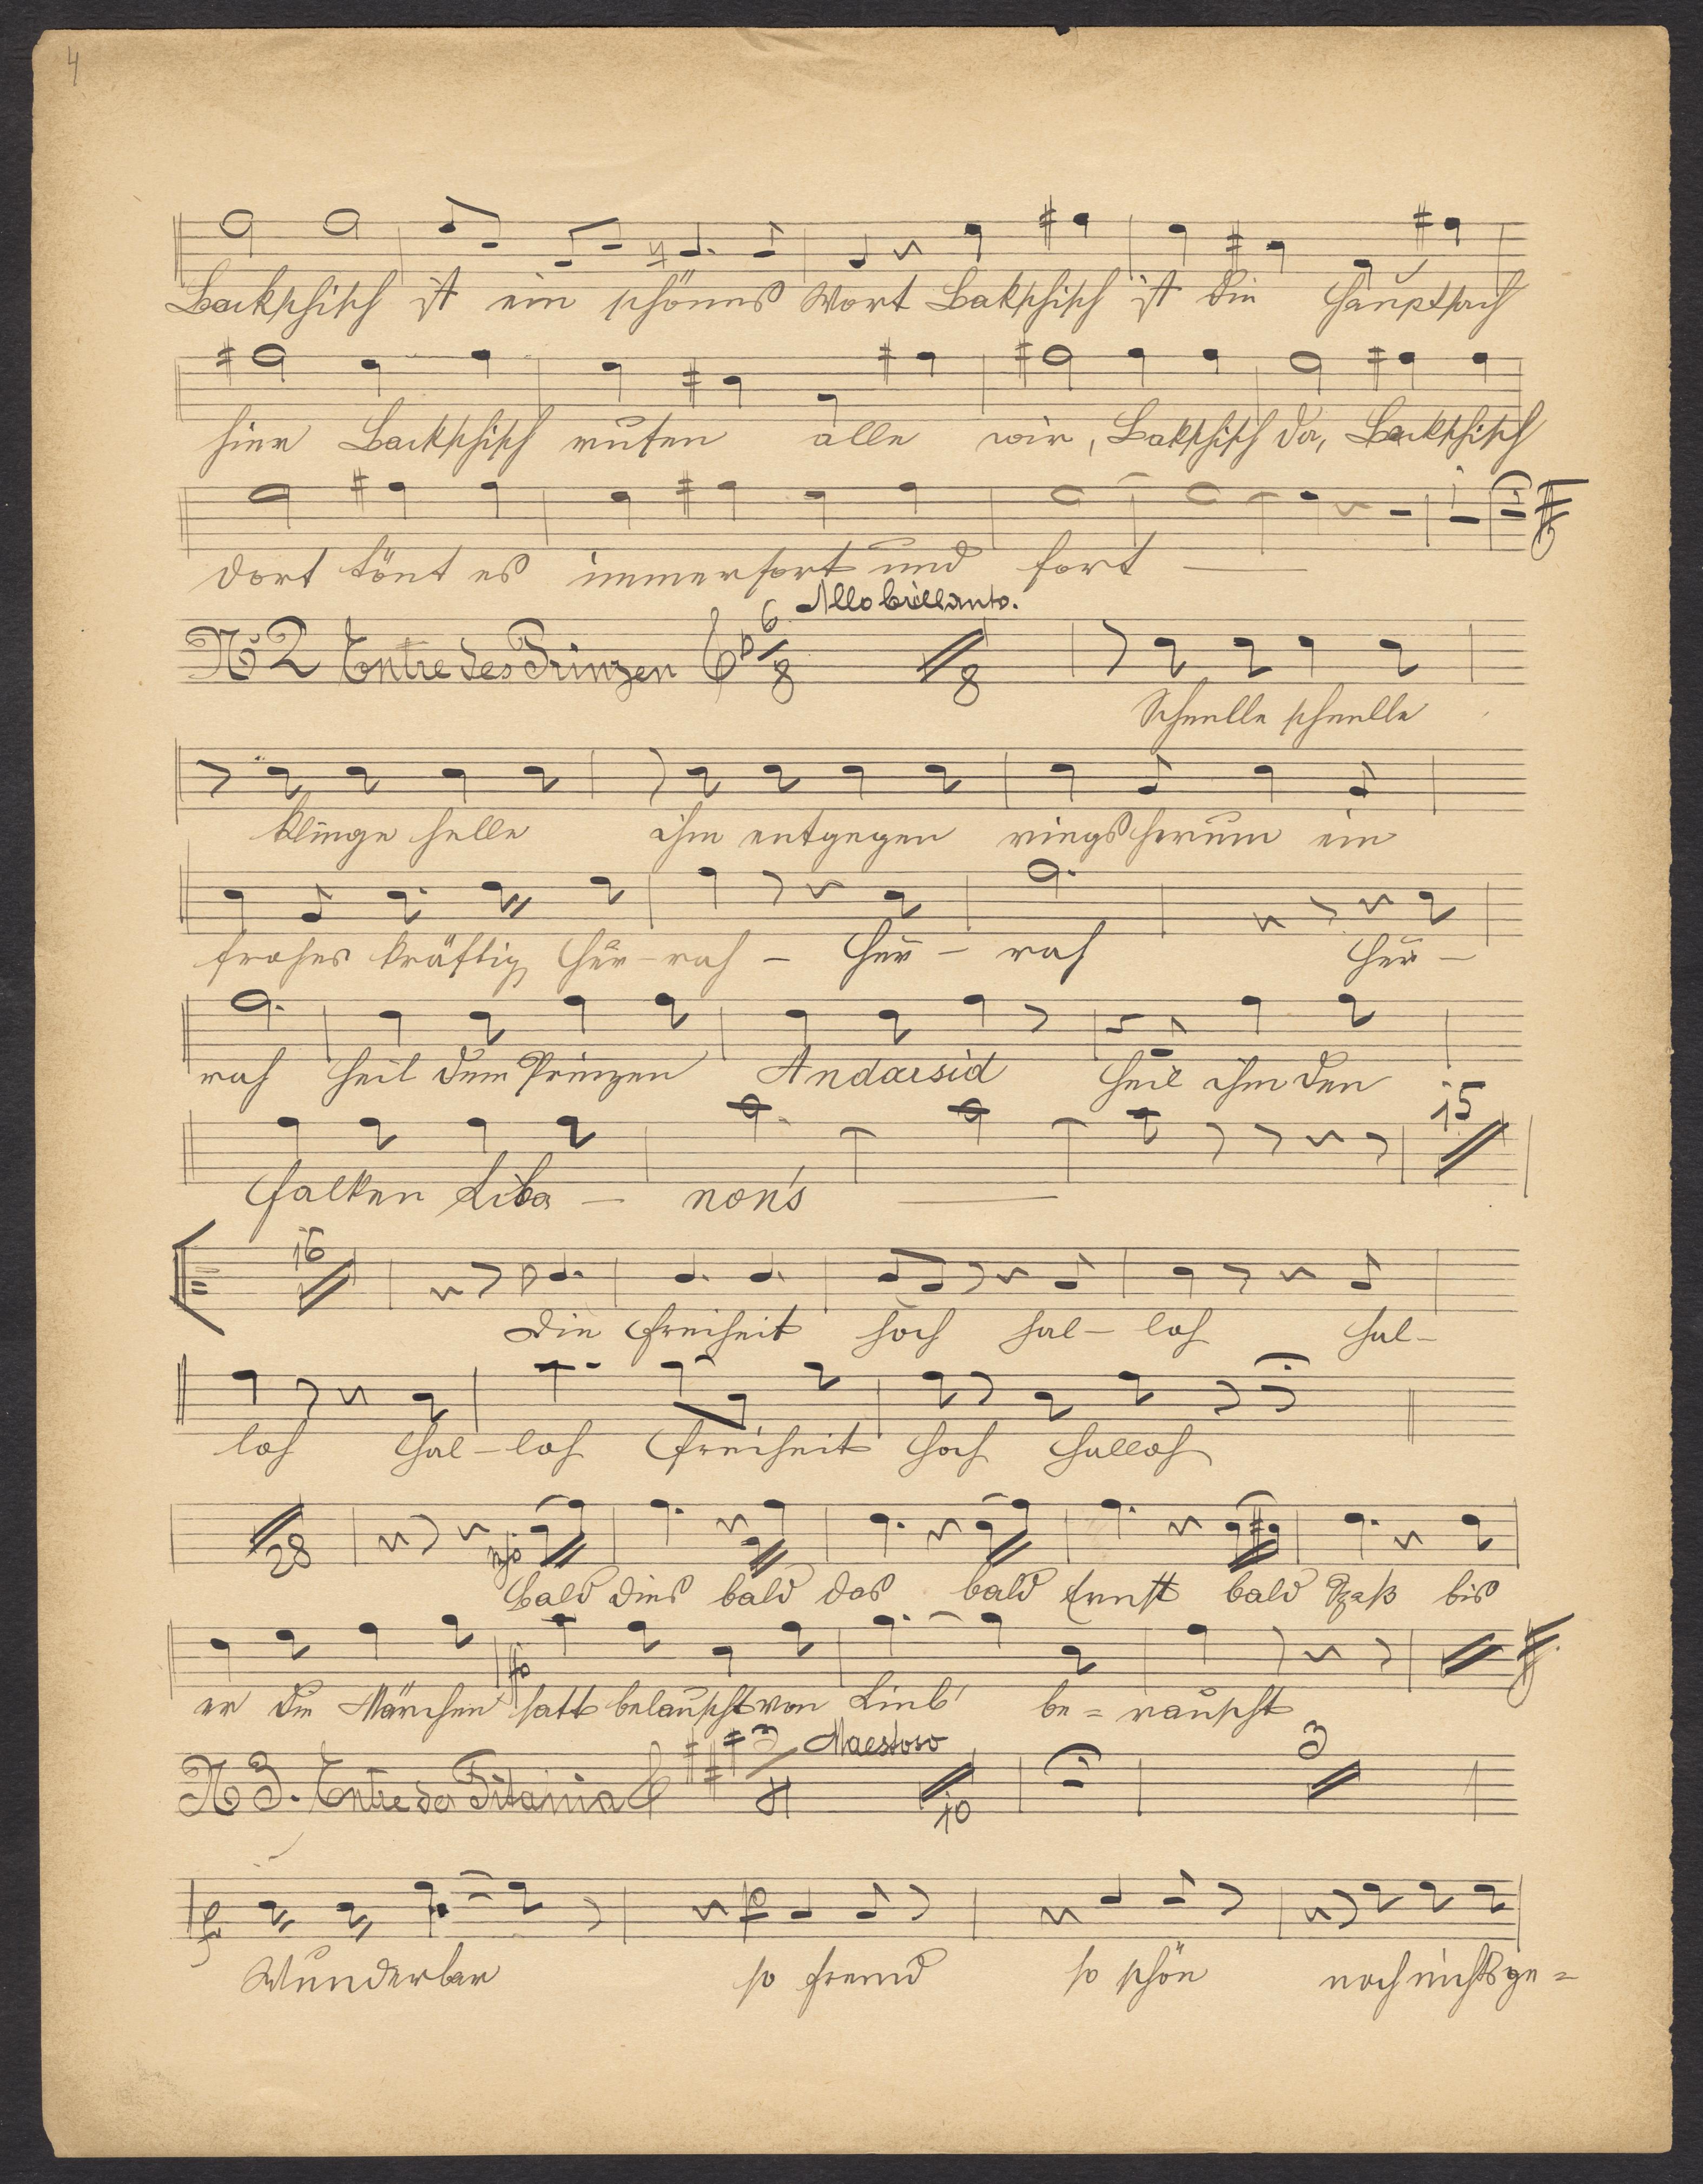 4
Backschisch ist ein schönes Wort Bakschisch ist die Hauptsach
hier Backschisch rufen alle wir, Bakschisch da, Backschisch
dort tönt es immerfort und fort
No 2 Entre des Prinzen 6/8 Allo brillanto. 8
Schnelle schnelle
klinge helle ihm entgegen rings herum ein
frohes kräftig Hur-rah - Hur - rah Hur -
rah Heil dem Prinzen Andarsid Heil ihm den
15
Falken Liba - non's
16
Die Freiheit hoch hal - loh hal -
loh Hal - loh Freiheit hoch Halloh
28
Bald dies bald das bald Ernst bald Spaß bis
er die Märchen satt belauscht von Lieb' be = rauscht
N 3. Entre der Titania 3/4 Maestoso 10 3
Wunderbar so fremd so schön noch nichts ge =